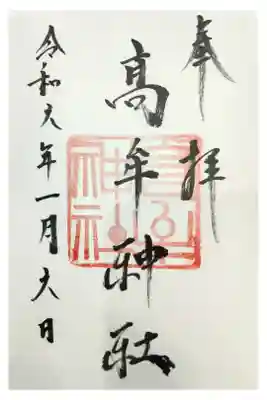 奉拝
高牟神社
令和六年一月六日